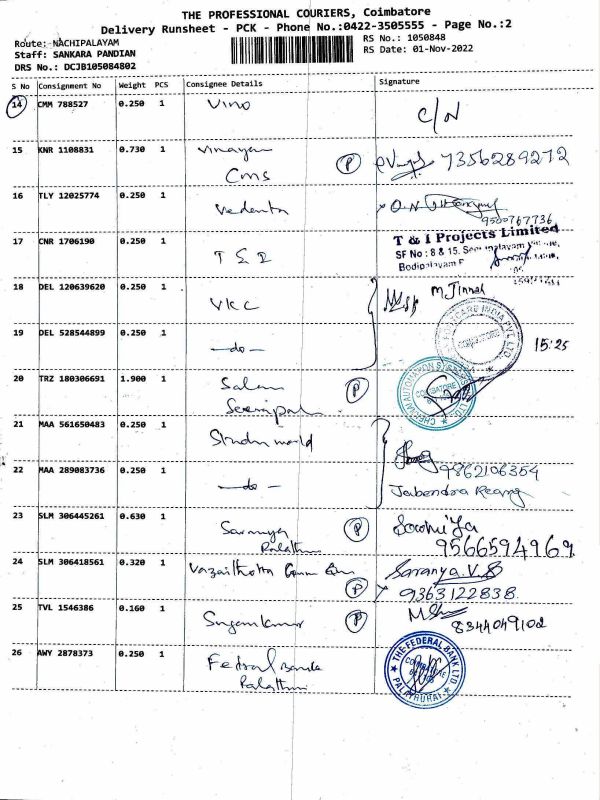 THE PROFESSIONAL COURIERS, Coimbatore
Delivery Runsheet - PCK - Phone No.:0422-3505555 - Page No.:2
Route: NACHIPALAYAM
Staff: SANKARA PANDIAN
DRS No.: DCJB105084802
RS No.: 1050848
RS Date: 01-Nov-2022
S No Consignment No Weight PCS Consignee Details Signature
14 CMM 788527 0.250 1 Vino C/N
15 KNR 1108831 0.730 1 Vinayan P 7356289272
Cms
16 TLY 12025774 0.250 1 Vedanta
9500767736
17 CNR 1706190 0.250 1 T & I T & I Projects Limited
SF No : 8 & 15,
18 DEL 120639620 0.250 1 VKC M Jinnah
19 DEL 528544899 0.250 1 -do- 15:25
20 TRZ 180306691 1.900 1 Salam P
COIMBATORE
21 MAA 561650483 0.250 1
22 MAA 289083736 0.250 1 -do- 9862106354
Jabendra Reang
23 SLM 306445261 0.630 1 Saranya P
9566594969
24 SLM 306418561 0.320 1 Saranya.V.S
P 9363122838
25 TVL 1546386 0.160 1 Sugankumar P 8344049102
26 AWY 2878373 0.250 1 Fedral Bank
THE FEDERAL BANK LTD
COIMBATORE
PALATHURAI